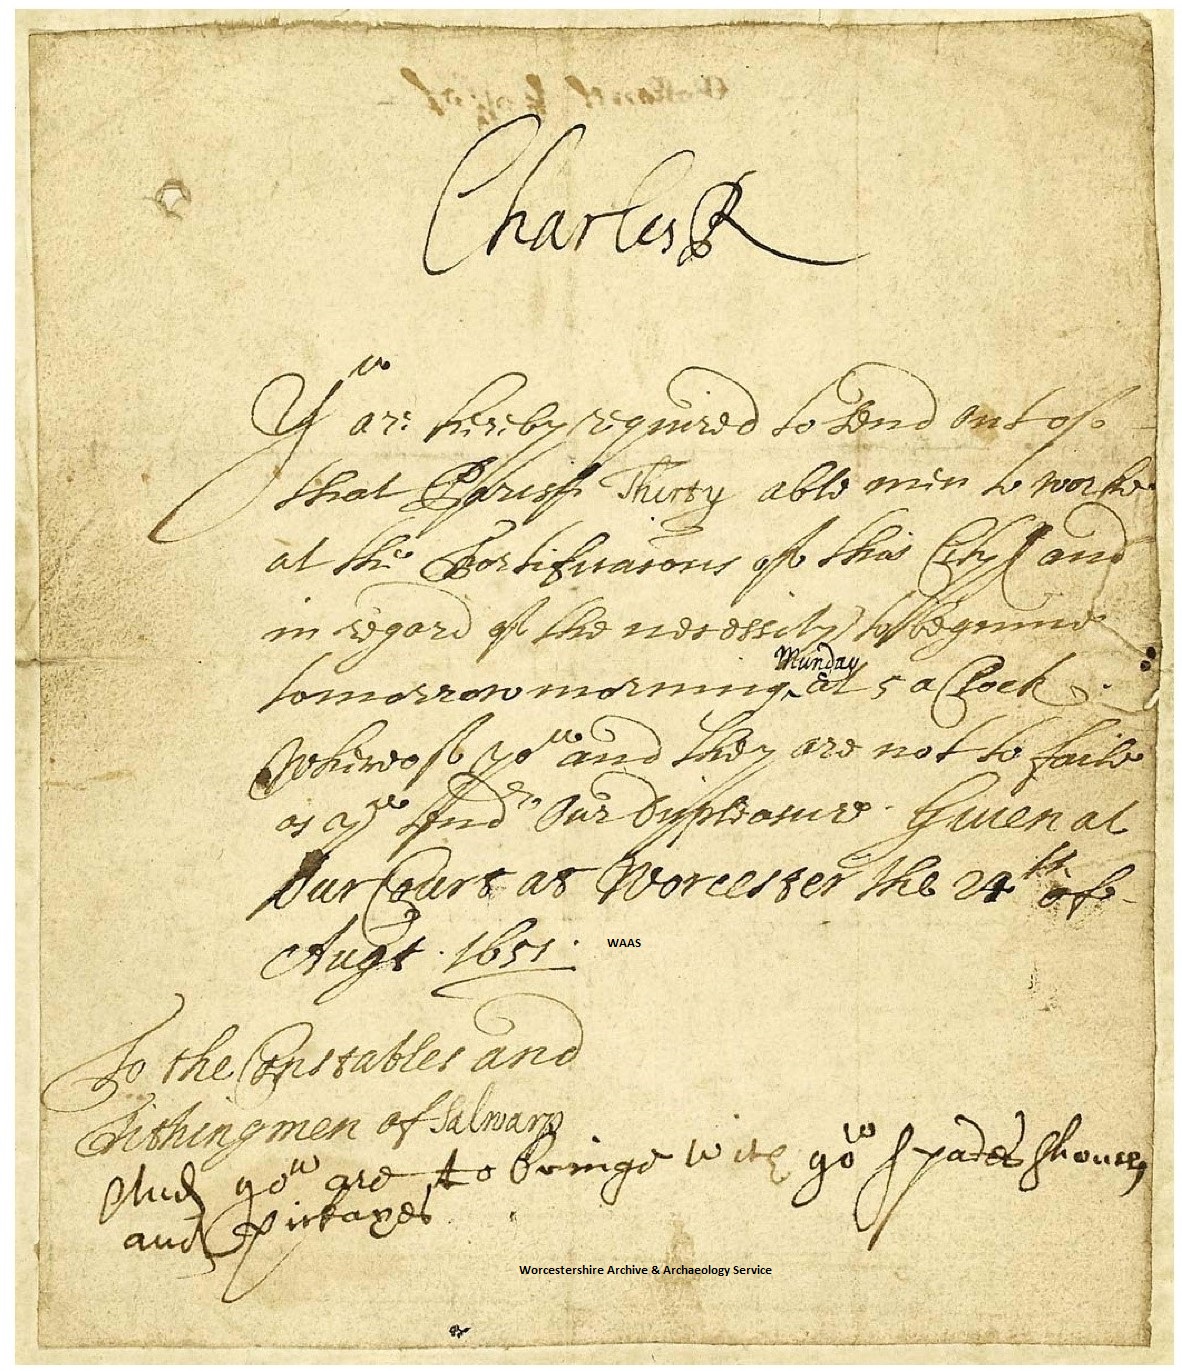 Charles R
Yu are hereby required to send out of
that Parish Thirty able men to worke
at the Fortificacons of this Citty and
in regard of the necessity to beginne
tomorrow morning Munday at 5 a Clock
Whereof you and they are not to faile
as you tender Our displeasure. Given at
Our Court at Worcester the 24th of
Augt. 1651.
WAAS
To the Constables and
Tithingmen of Salwarp
And you are to bringe with you spades, shouels,
and Pickaxes
Worcestershire Archive & Archaeology Service